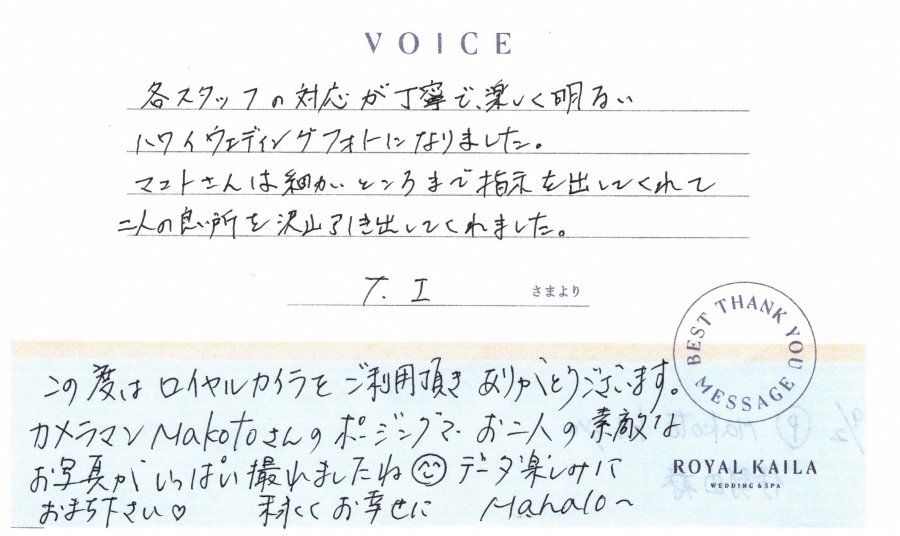 VOICE
各スタッフの対応が丁寧で、楽しく明るい
ハワイウェディングフォトになりました。
マコトさんは細かいところまで指示を出してくれて
二人の良い所を沢山引き出してくれました。
T. I さまより
BEST THANK YOU MESSAGE
この度はロイヤルカイラをご利用頂きありがとうございます。
カメラマンMakotoさんのポージングで お二人の素敵な
お写真がいっぱい撮れましたね データ楽しみに
おまち下さい♡ 末永くお幸せに Mahalo〜
ROYAL KAILA
WEDDING & SPA